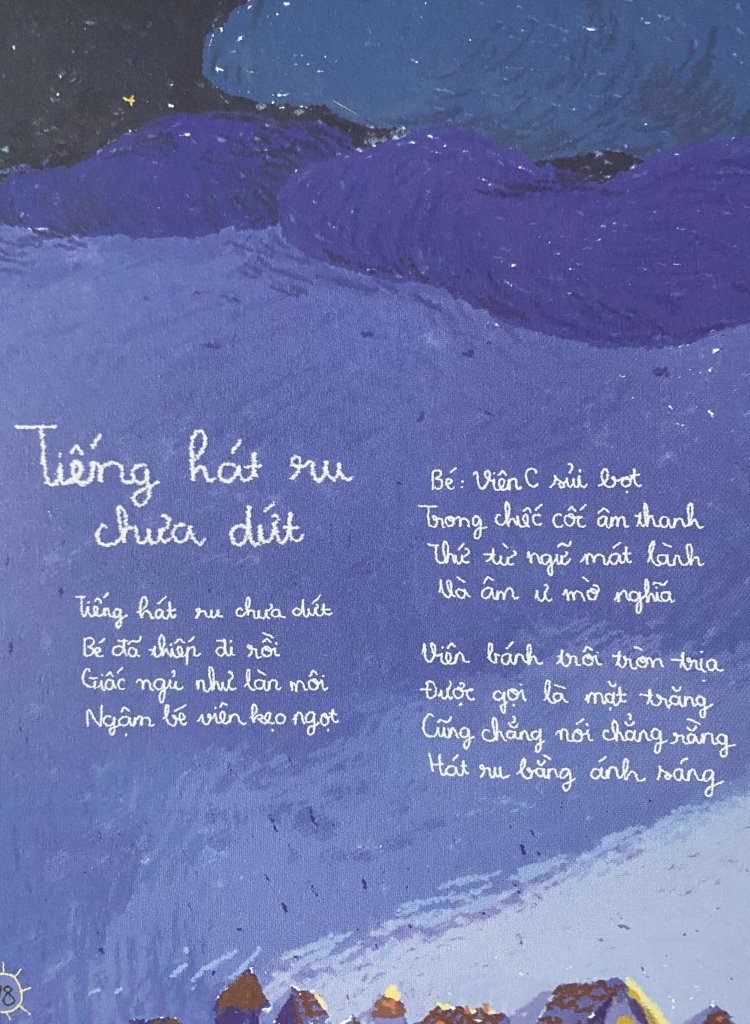 Tiếng hát ru
chưa dứt
Tiếng hát ru chưa dứt
Bé đã thiếp đi rồi
Giấc ngủ như làn môi
Ngậm bé viên kẹo ngọt
Bé: Viên C sủi bọt
Trong chiếc cốc âm thanh
Thứ từ ngữ mát lành
Và âm u mờ nghĩa
Viên bánh trôi tròn trịa
Được gọi là mặt trăng
Cũng chẳng nói chẳng rằng
Hát ru bằng ánh sáng